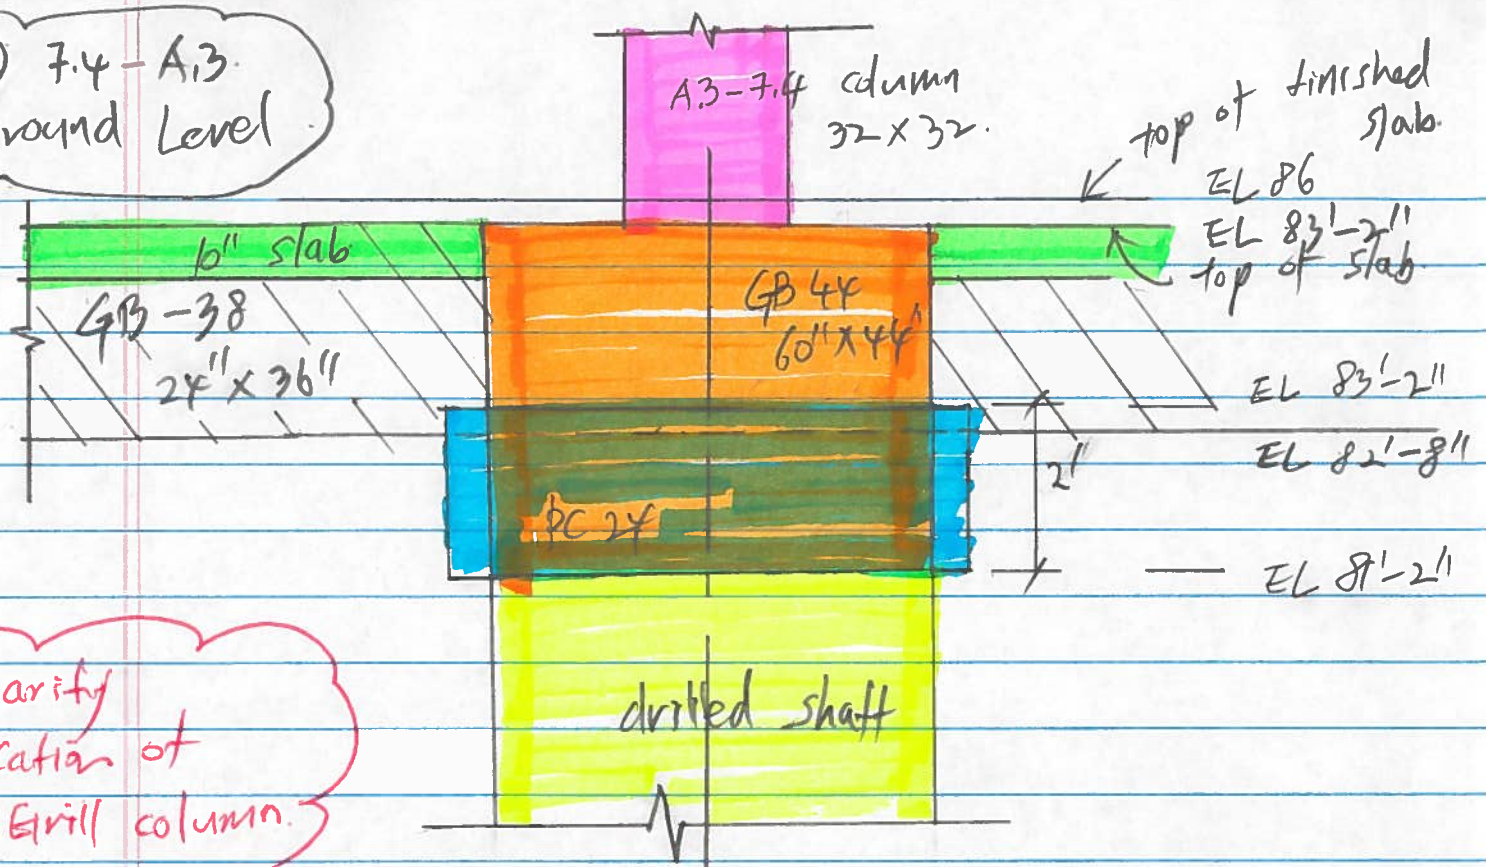 ) 7.4 - A.3
round Level
A.3-7.4 column
32 x 32.
top of finished
slab.
EL 86
EL 83'-2"
top of slab
10" slab
GB-38
24" x 36"
GB 44
60" x 44"
EL 83'-2"
EL 82'-8"
2'
PC 24
EL 81'-2"
drilled shaft
arify
cation of
Grill column.